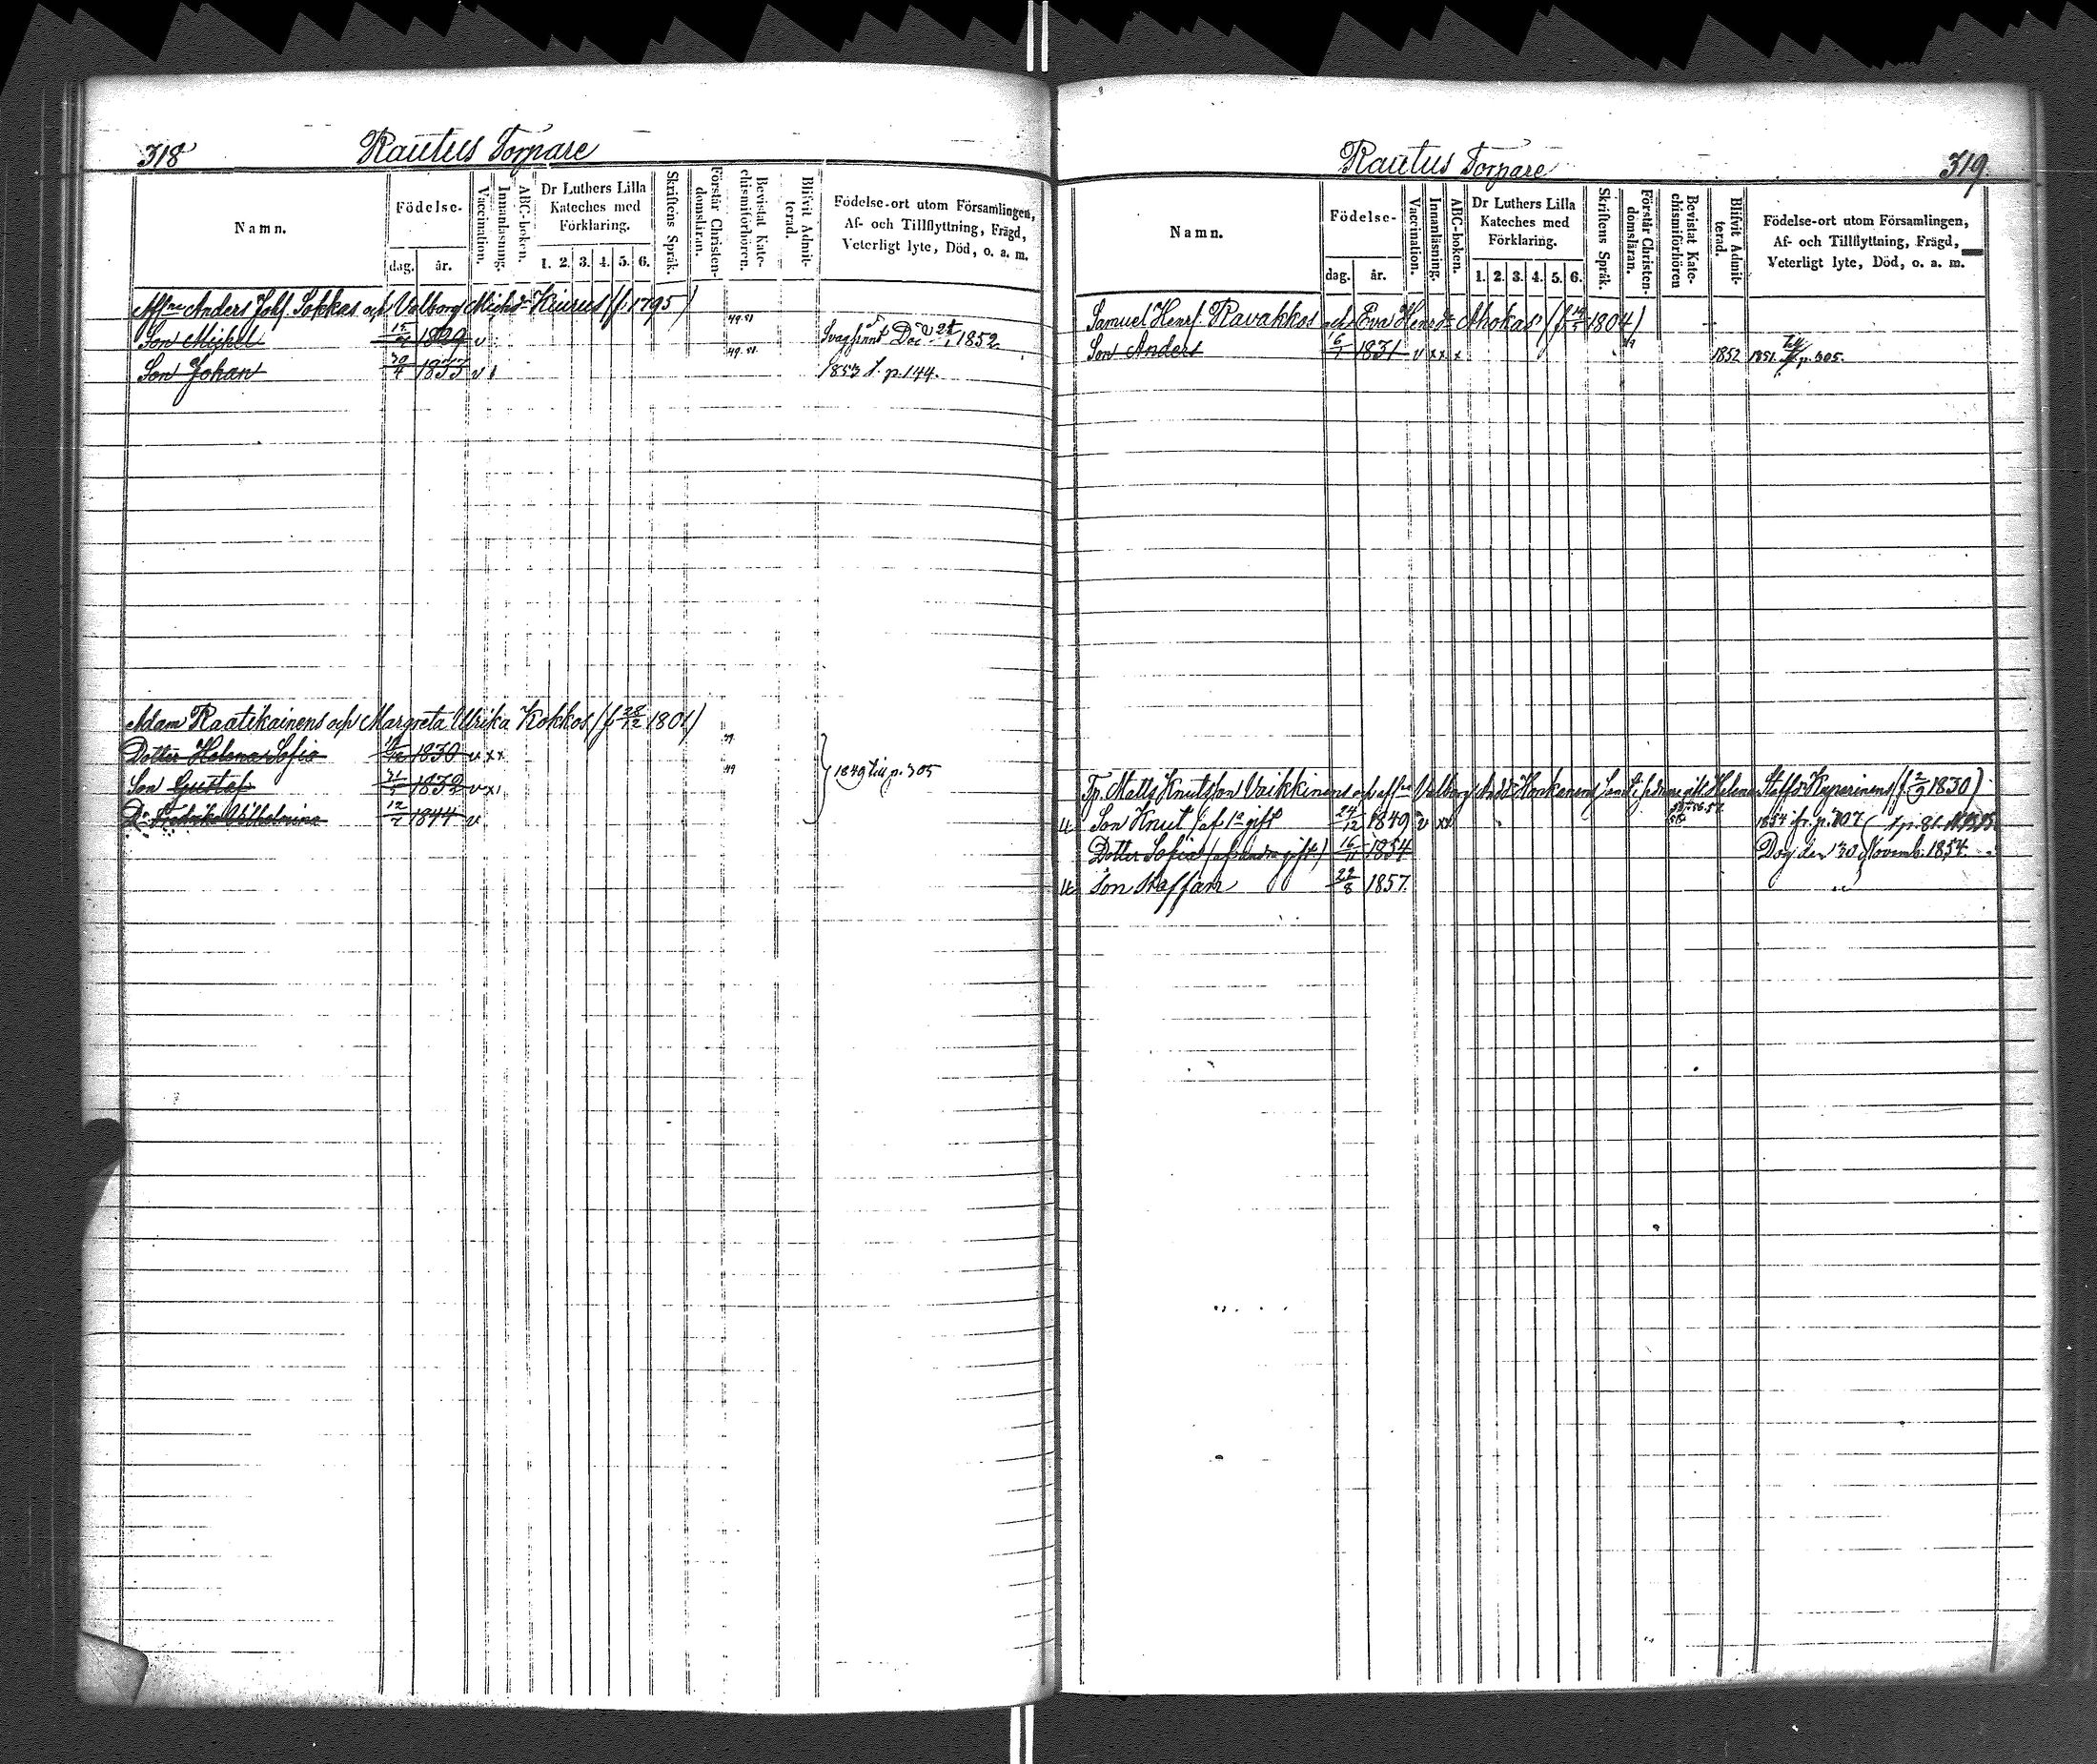 318
Rautus Torpare
Namn.
Födelse-
dag.
år.
Vaccination.
Innanläsning.
ABC-boken.
Dr Luthers Lilla
Kateches med
Förklaring.
1. 2. 3. 4. 5. 6.
Skriftens Språk.
Förstår Christen-
domsläran.
Bevistat Kate-
chismiförhören.
Blifvit Admit-
terad.
Födelse-ort utom Församlingen,
Af- och Tillflyttning, Frägd,
Veterligt lyte, Död, o. a. m.
Anders Johs. Sokkas och Valborg Michsdr Kiurus (f. 1795)
Son Michel 1829 v 49.51 Svagsint 1852
Son Johan 30/4 1833 v 49.51. 1853 p. 144.
Adam Raatikainens och Margreta Ulrika Kokkos (f 28/12 1801)
Dotter Helena Sofia 1830 v xx 49
Son Gustaf 31/ 1832 v x 49 1849 p. 305
Dr Fredrika Vilhelmina 12/ 1844 v
Rautus Torpare
319.
Namn.
Födelse-
dag.
år.
Vaccination.
Innanläsning.
ABC-boken.
Dr Luthers Lilla
Kateches med
Förklaring.
1. 2. 3. 4. 5. 6.
Skriftens Språk.
Förstår Christen-
domsläran.
Bevistat Kate-
chismiförhören
Blifvit Admit-
terad.
Födelse-ort utom Församlingen,
Af- och Tillflyttning, Frägd,
Veterligt lyte, Död, o. a. m.
Samuel Henrs. Ravakkos och Eva Henrsdr Ahokas (f 1804)
Son Anders 6/ 1831 v xx x 1852 1851 p. 305.
Tp. Matts Knutsson Vaikkinens och Valborg Andsdr Honkanens Helena Staffsdr Repo (f 2/9 1830)
Son Knut (af 1a gift 24/12 1849 v xx 1854 fr. p. 107
Dotter Sofia (af andra gift.) 16/11 1854 Dog den 30 Novemb. 1854.
Son Staffan 22/8 1857.